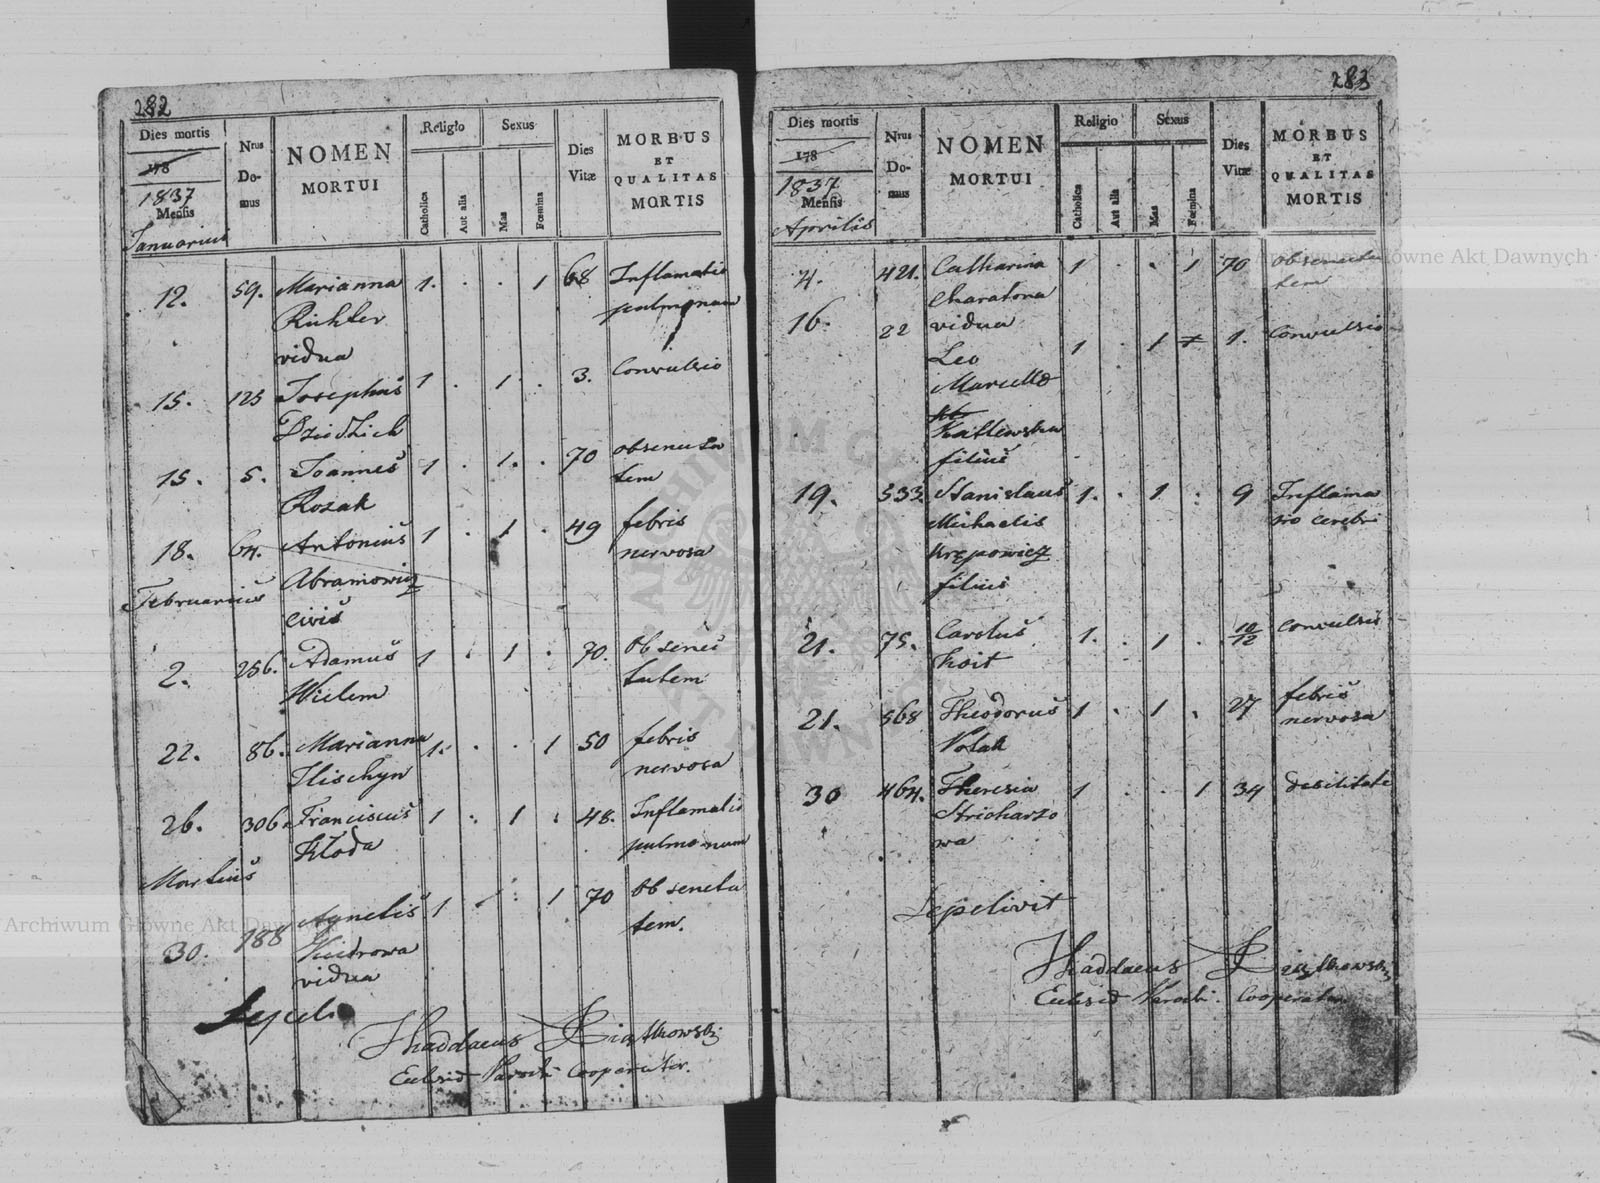 282
Dies mortis
178
1837
Mensis
Januarius
Nrus
Do-
mus
NOMEN
MORTUI
Religio
Catholica
Aut alia
Sexus
Mas
Fœmina
Dies
Vitæ
MORBUS
ET
QUALITAS
MORTIS
12. 59. Marianna 1. . . 1 68 Inflamatio
Richter pulmonum
vidua
15. 125 Josephus 1 . 1 . 3. Convulsio
Dziedzich
15. 5. Joannes 1 . 1. . 70 ob senectu
Rozak tem
18. 64. Antonius 1 . 1 . 49 febris
Abramowicz nervosa
civis
Februarius
2. 256. Adamus 1 . 1 . 70. Ob senec
Wielem tutem
22. 86. Marianna 1. . . 1 50 febris
nervosa
26. 306. Franciscus 1 . 1 . 48. Inflamatio
Kłoda pulmonum
Martius
30. 188 Agnetis 1 . . 1 70 Ob senectu
tem.
vidua
Sepeli
Thaddaeus Piątkowski
Eccles Paroch Cooperator.
283
Dies mortis
178
1837
Mensis
Aprilis
Nrus
Do-
mus
NOMEN
MORTUI
Religio
Catholica
Aut alia
Sexus
Mas
Fœmina
Dies
Vitæ
MORBUS
ET
QUALITAS
MORTIS
4. 421. Catharina 1 . . 1 70 ob senectu
Charatona tem
vidua
16. 22 Leo 1 . 1 1. Convulsio
Marcelli
filius
19. 533. Stanislaus 1. . 1 . 9 Inflama
Michaelis tio cerebri
Krępowicz
filius
21. 75. Carolus 1. . 1 . 10/12 convulsio
Koit
21. 568 Theodorus 1 . 1 . 27 febris
Polak nervosa
30 464. Theresia 1 . . 1 34 debilitate
Stricharzo
wa
Sepelivit
Thaddaeus Piątkowski
Eccles Paroch. Cooperator
Archiwum Główne Akt Dawnych
Archiwum Główne Akt Dawnych